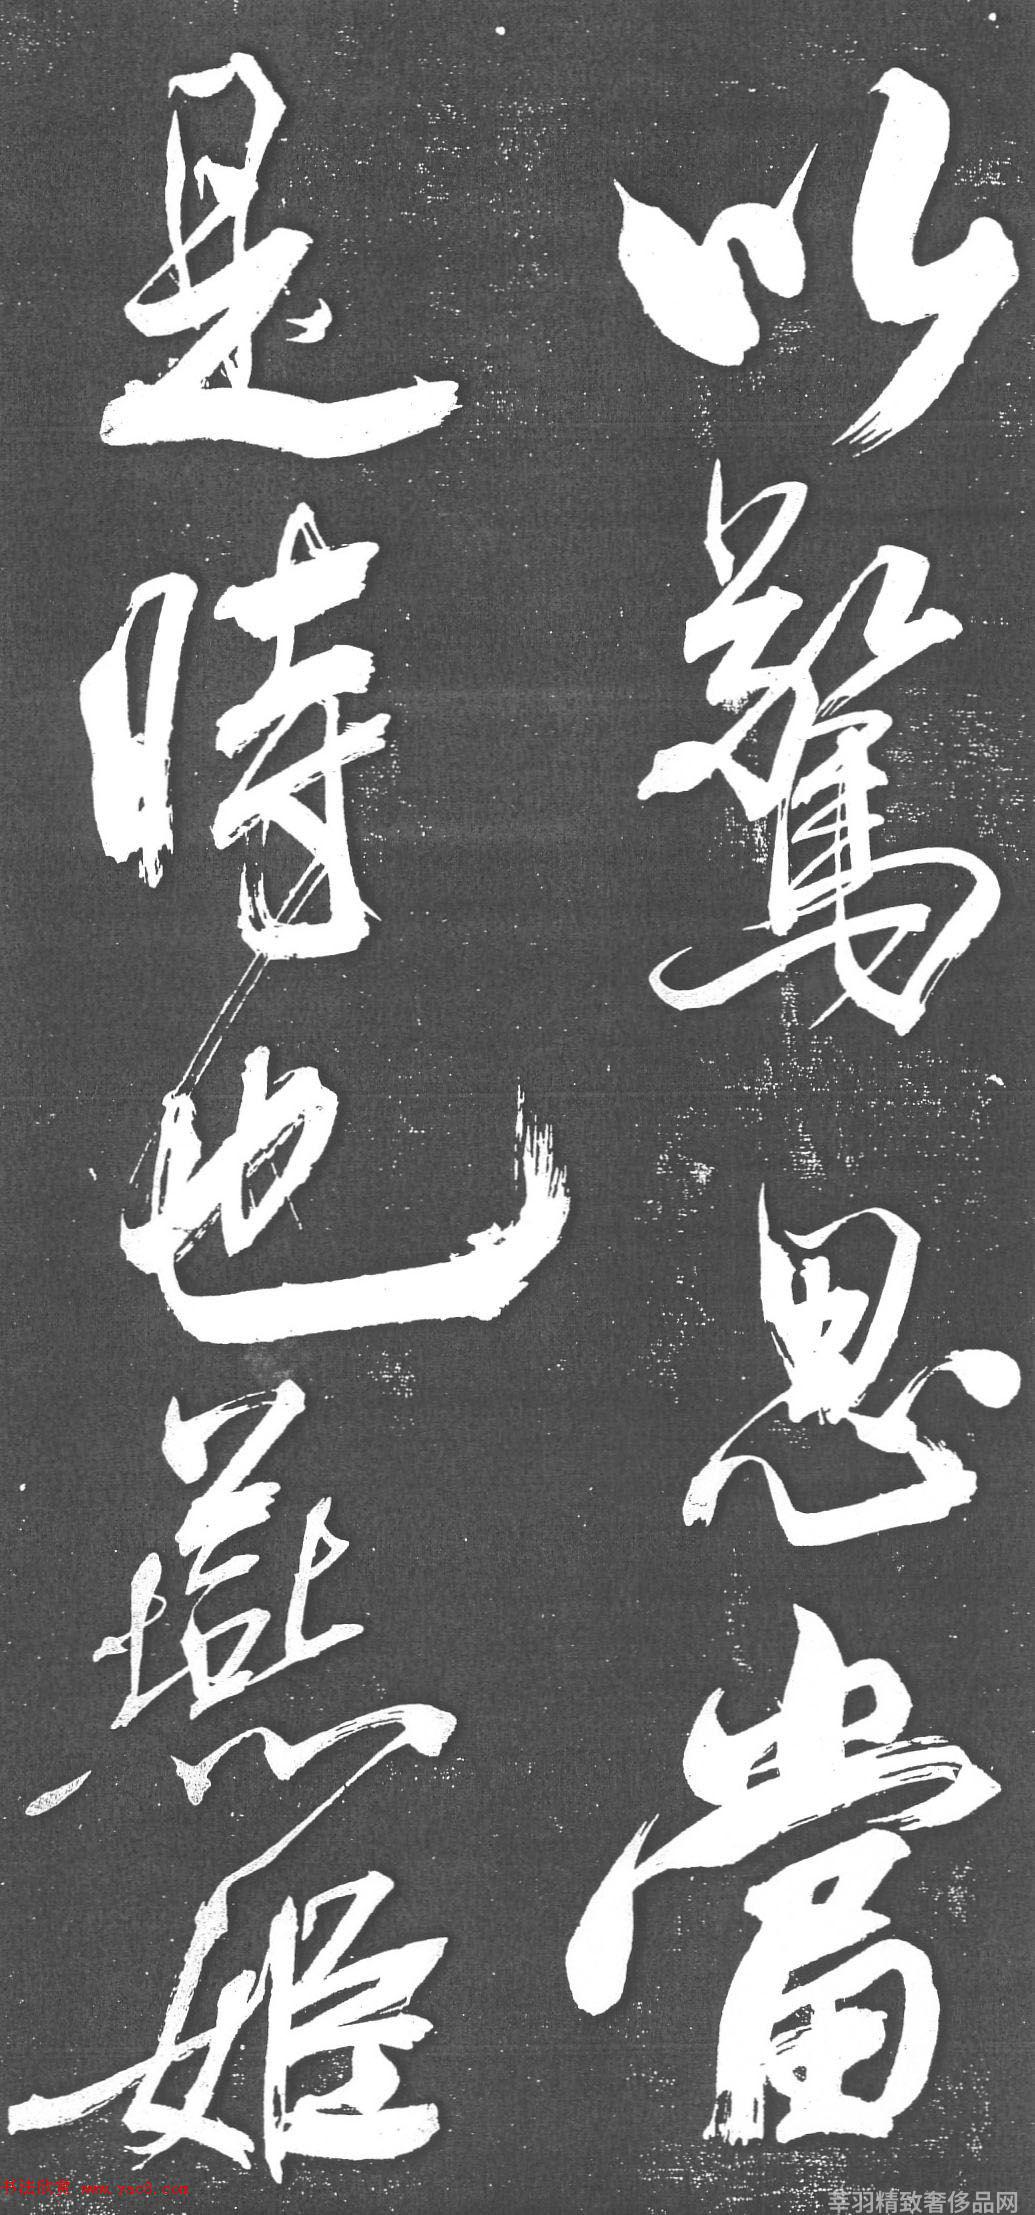 以驚思當
是時也燕姬
书法欣赏 www.yac8.com
莘羽精致奢侈品网